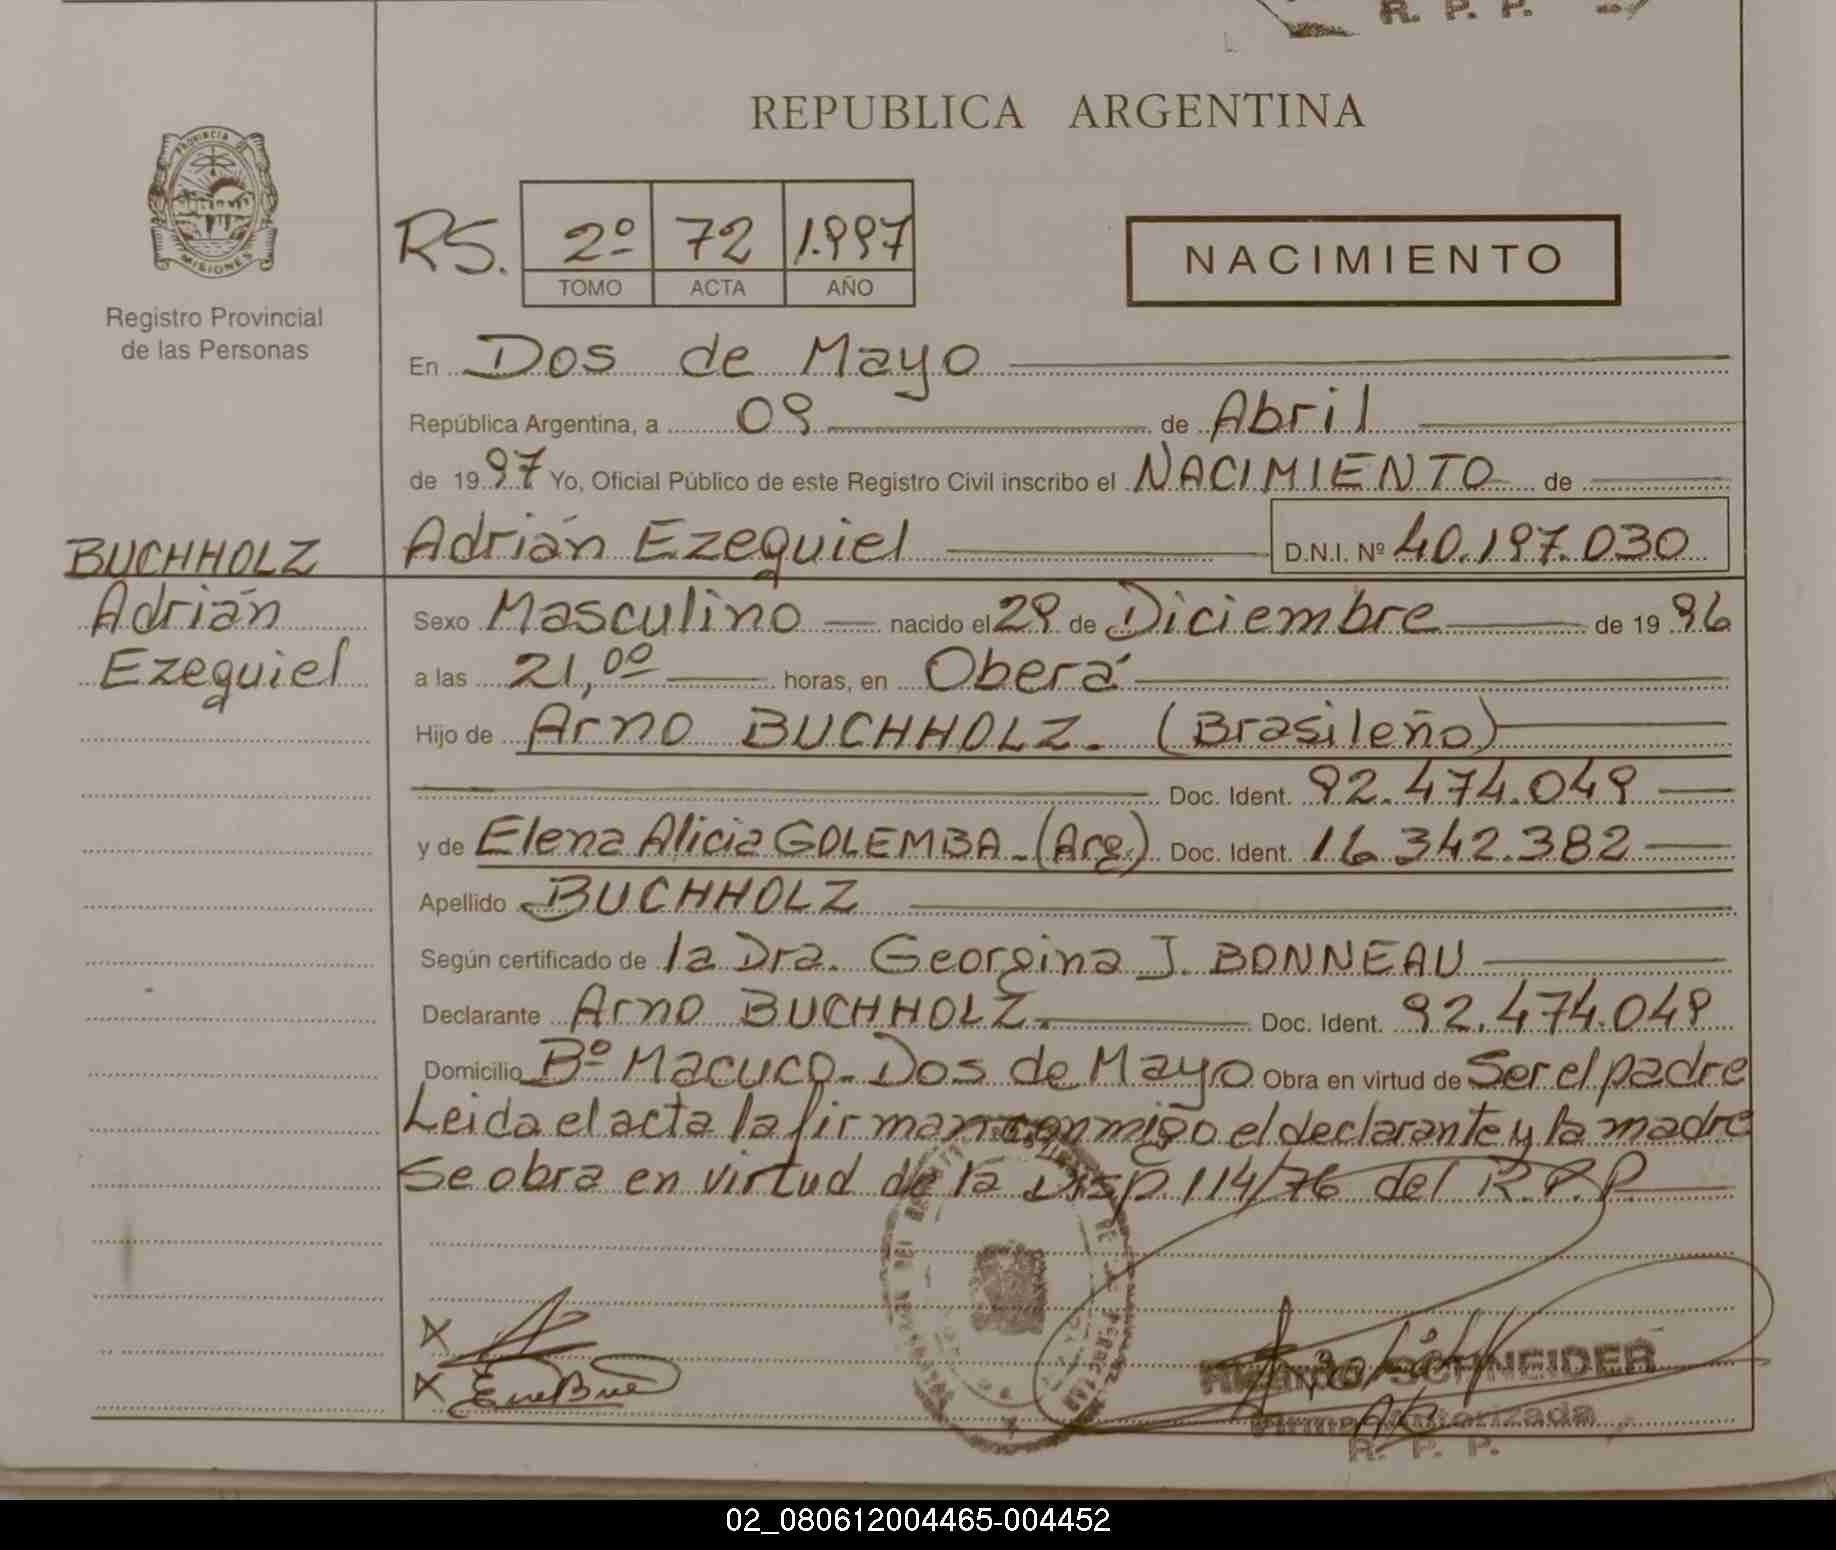 R. P. P.
REPUBLICA ARGENTINA
PROVINCIA DE
MISIONES
Registro Provincial
de las Personas
RS. 2º 72 1.997
TOMO ACTA AÑO
NACIMIENTO
En Dos de Mayo
República Argentina, a 09 de Abril
de 1997 Yo, Oficial Público de este Registro Civil inscribo el NACIMIENTO de
Adrián Ezequiel D.N.I. Nº 40.197.030
BUCHHOLZ
Adrián
Ezequiel
Sexo Masculino nacido el 29 de Diciembre de 1996
a las 21,00 horas, en Oberá
Hijo de Arno BUCHHOLZ. (Brasileño)
Doc. Ident. 92.474.049
y de Elena Alicia GOLEMBA - (Arg.) Doc. Ident. 16.342.382
Apellido BUCHHOLZ
Según certificado de la Dra. Georgina J. BONNEAU
Declarante Arno BUCHHOLZ. Doc. Ident. 92.474.049
Domicilio Bº Macuco - Dos de Mayo Obra en virtud de Ser el padre
Leida el acta la firman conmigo el declarante y la madre
Se obra en virtud de la Disp. 114/76 del R.P.P.
X
X
SCHNEIDER
Firma Autorizada
R. P. P.
02_080612004465-004452